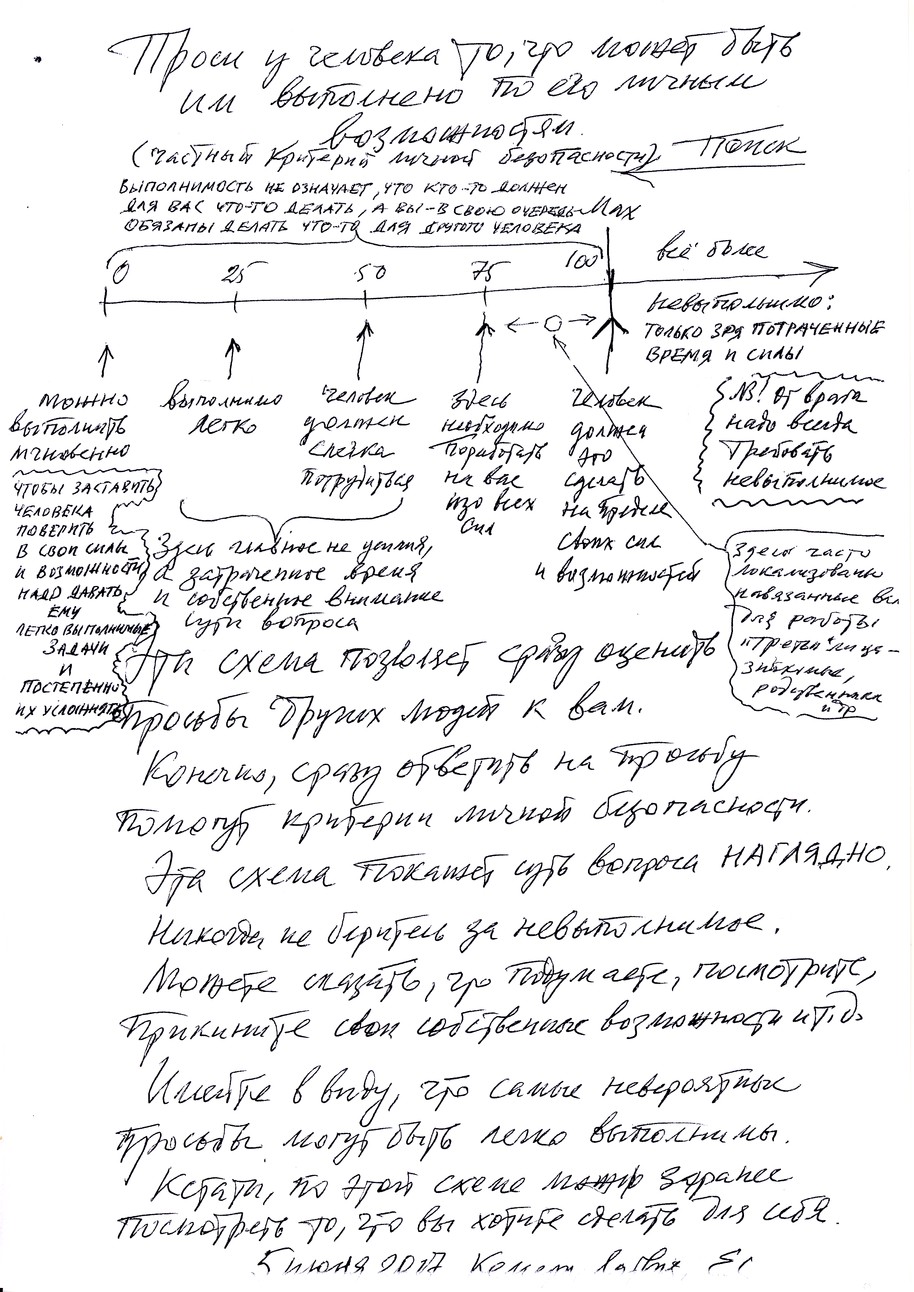 Проси у человека то, что может быть
им выполнено по его личным
возможностям.
(частный критерий личной безопасности) Поиск
ВЫПОЛНИМОСТЬ НЕ ОЗНАЧАЕТ, ЧТО КТО-ТО ДОЛЖЕН
ДЛЯ ВАС ЧТО-ТО ДЕЛАТЬ, А ВЫ-В СВОЮ ОЧЕРЕДЬ-
ОБЯЗАНЫ ДЕЛАТЬ ЧТО-ТО ДЛЯ ДРУГОГО ЧЕЛОВЕКА
Max
0 25 50 75 100
всё более
невыполнимо:
ТОЛЬКО ЗРЯ ПОТРАЧЕННЫЕ
ВРЕМЯ И СИЛЫ
можно
выполнить
мгновенно
выполнимо
легко
человек
должен
слегка
потрудиться
здесь
необходимо
поработать
на вас
изо всех
сил
человек
должен
это
сделать
на пределе
своих сил
и возможностей
NB! От врага
надо всегда
требовать
невыполнимое
ЧТОБЫ ЗАСТАВИТЬ
ЧЕЛОВЕКА
ПОВЕРИТЬ
В СВОИ СИЛЫ
И ВОЗМОЖНОСТИ
НАДО ДАВАТЬ
ЕМУ
ЛЕГКО ВЫПОЛНИМЫЕ
ЗАДАЧИ
И
ПОСТЕПЕННО
ИХ УСЛОЖНЯТЬ
Здесь главное не усилия,
а затраченное время
и собственное внимание
сути вопроса
Здесь часто
локализованы
навязанные
для работы
"третьи" лица-
знакомые,
родственники
и тр
Эта схема позволяет сразу оценить
просьбы других людей к вам.
Конечно, сразу ответить на просьбу
помогут критерии личной безопасности.
Эта схема покажет суть вопроса НАГЛЯДНО.
Никогда не беритесь за невыполнимое.
Можете сказать, что подумаете, посмотрите,
прикините свои собственные возможности и т.д.
Имейте в виду, что самые невероятные
просьбы могут быть легко выполнимы.
Кстати, по этой схеме можно заранее
посмотреть то, что вы хотите сделать для себя.
5 июня 2017